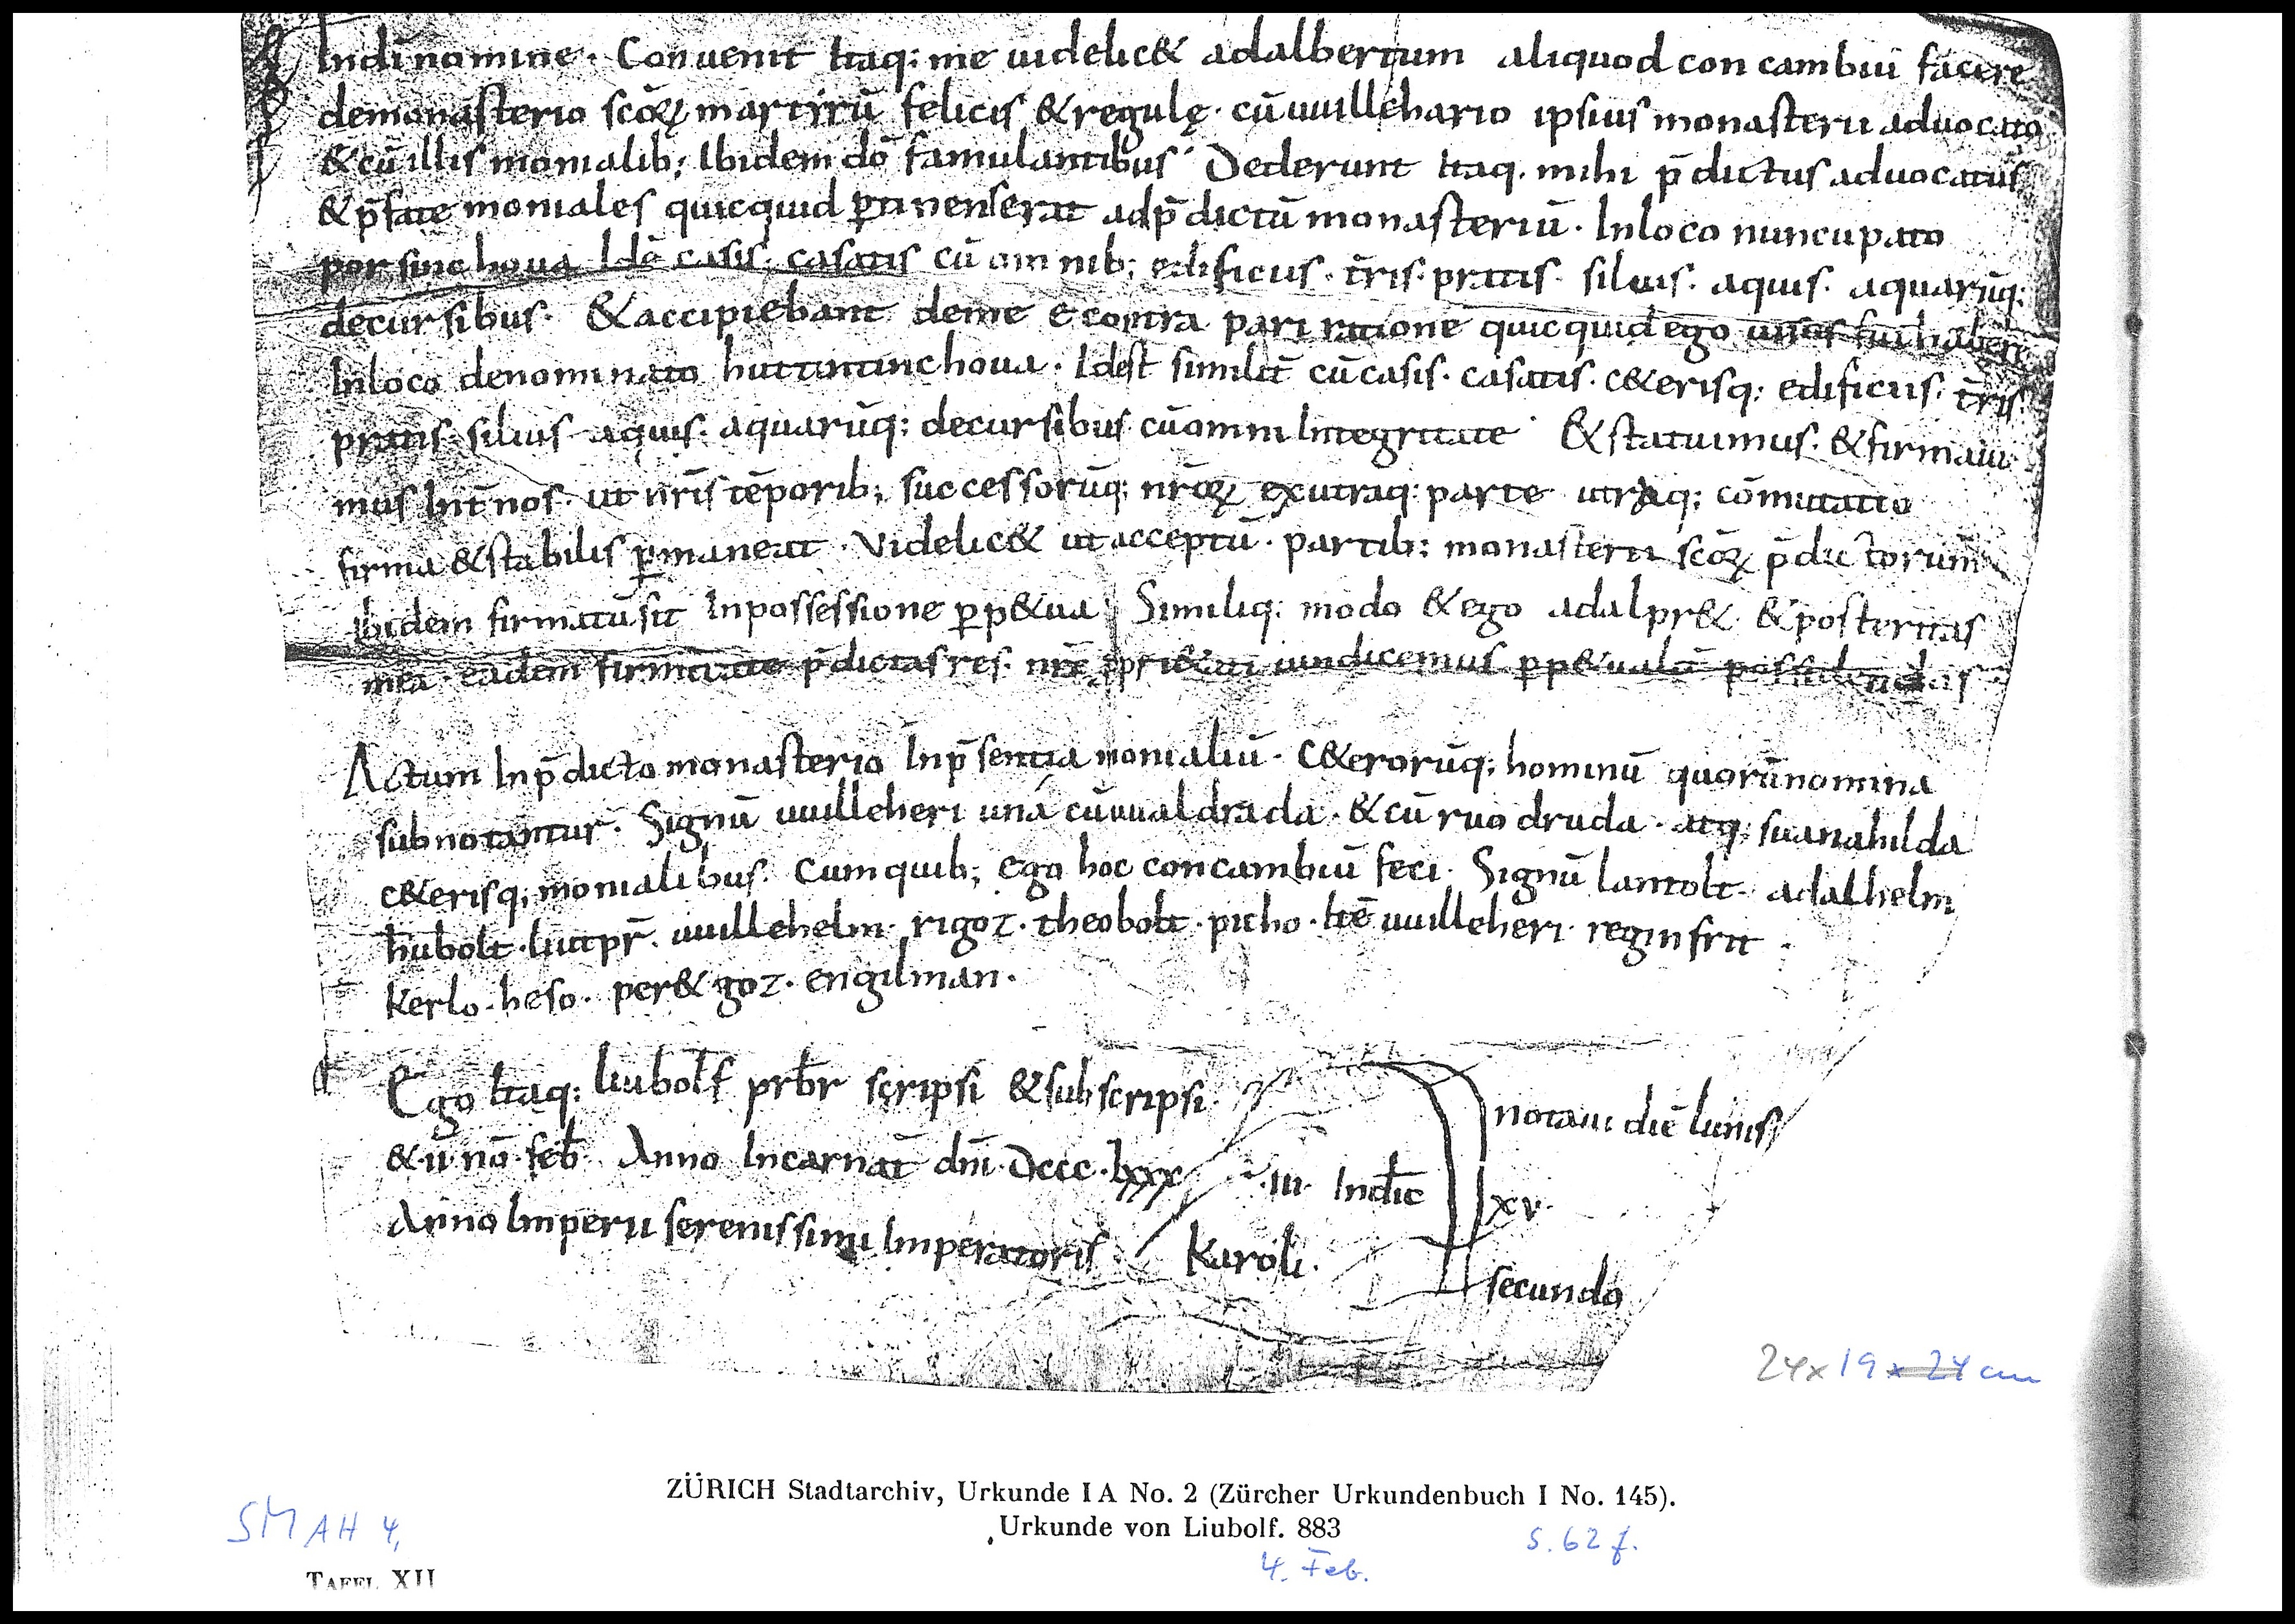 Indī nomine · Convenit Itaq; me uidelic& adalbertum aliquod con cambiū facere
demonasterio scōꝝ martirū felicis & regulę · cū uuillehario ipsius monasterii aduocato
& cū illis monialib; Ibidem dō famulantibus Dederunt Itaq. mihi p̄dictus aduocatus
& p̄fate moniales quicquid ꝑtinens erat adp̄dictū monasteriū · Inloco nuncupato
porsinchoua Idē casis. casatis cū omnib; edificiis · t̄ris. pratis. siluis. aquis. aquarūq;
decursibus. & accipiebant deme econtra pari ratione quicquid ego uisus fui habere
Inloco denominato huttintinchoua. Idest similit̄ cū casis. casatis. c&erisq; edificiis. t̄ris
pratis. siluis aquis. aquarūq; decursibus cū omni Integritate & statuimus. & firmaui
mus Int̄ nos. ut nr̄is tēporib; successorūq; nr̄oꝝ exutraq; parte utraq; cōmutatio
firma & stabilis ꝑmaneat. Videlic& ut acceptū. partib; monasterii scōꝝ p̄dictorum
Ibidem firmatū sit Inpossessione ꝑp&ua Similiq; modo & ego adalpr& & posteritas
mea. eadem firmitate p̄dictas res. nr̄e ppri&ati iundicemus ꝑp&ualit̄ possidendas
Actum Inp̄dicto monasterio Inp̄sentia monialiū. C&erorūq; hominū quorū nomina
subnotantur. Signū uuilleheri unā cū uualdrada. & cū ruodruda. atq; suanahilda
c&erisq; monialibus. Cum quib; ego hoc concambiū feci. Signū lantolt. adalhelm
hubolt. liutpr̄. uuillehelm. rigoz. theobolt. picho. Itē uuilleheri. reginfrit.
kerlo. heso. per&goz. engilman.
Ego Itaq; liubolf prbr̄ scripsi & subscripsi. notaui diē lunis
&. ii. nō. feb̄. Anno Incarnat̄ dn̄i. Dccc. lxxx. iii. Indic̄ xv.
Anno Imperii serenissimi Imperatoris. Karoli. secundo
24x19 x 24 cm
ZÜRICH Stadtarchiv, Urkunde I A No. 2 (Zürcher Urkundenbuch I No. 145).
Urkunde von Liubolf. 883
SMAH 4, S. 62 f.
4. Feb.
TAFEL XII